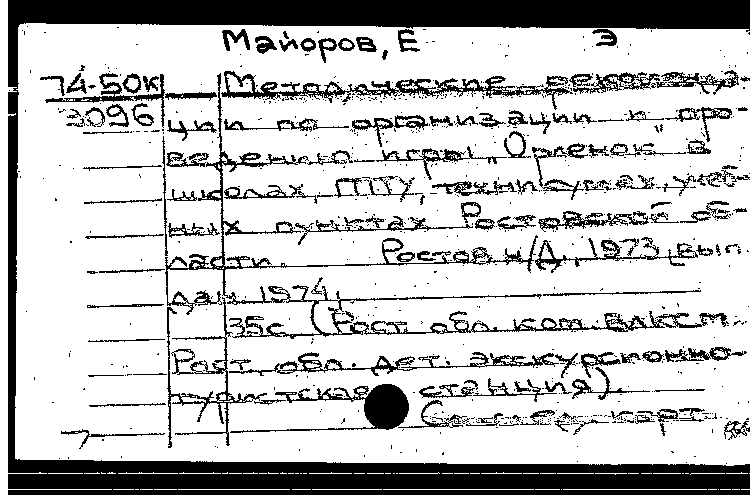 Майоров, Е Э
74-50к Методические рекоменда-
3096 ции по организации и про-
ведению игры „Орленок" в
школах, ГПТУ, техникумах, учеб-
ных пунктах Ростовской об-
ласти. Ростов н/Д., 1973, [вып.
дан. 1974]
35с. (Рост. обл. ком. ВЛКСМ.
Рост. обл. дет. экскурсионно-
туристская станция).
См. след. карт.